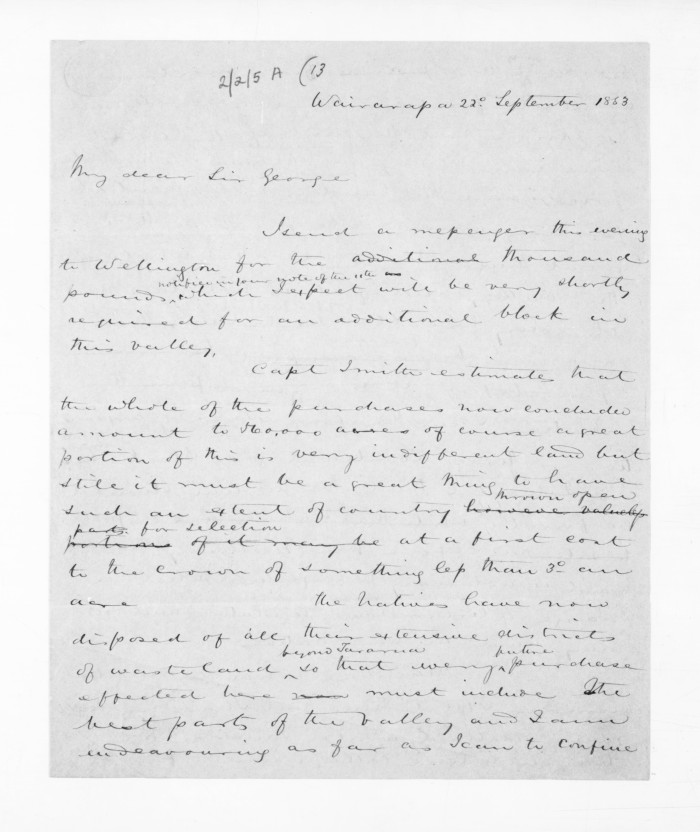 2/2/5 A (13
Wairarapa 22d. September 1853
My dear Sir George
I send a messenger this evening
to Wellington for the additional thousand
notified in your note of the 11th
pounds, which I expect will be very shortly
required for an additional block in
this valley,
Capt Smith estimates that
the whole of the purchases now concluded
amount to 760,000 acres of course a great
portion of this is very indifferent land but
still it must be a great thing to have
thrown open
such an extent of country however valueless
parts for selection
portions of it may be at a first cost
to the Crown of something less than 3d. an
acre the Natives have now
disposed of all their extensive districts
beyond Tararua future
of waste land, so that every purchase
effected here must include the
best parts of the valley and I am
endeavouring as far as I can to confine